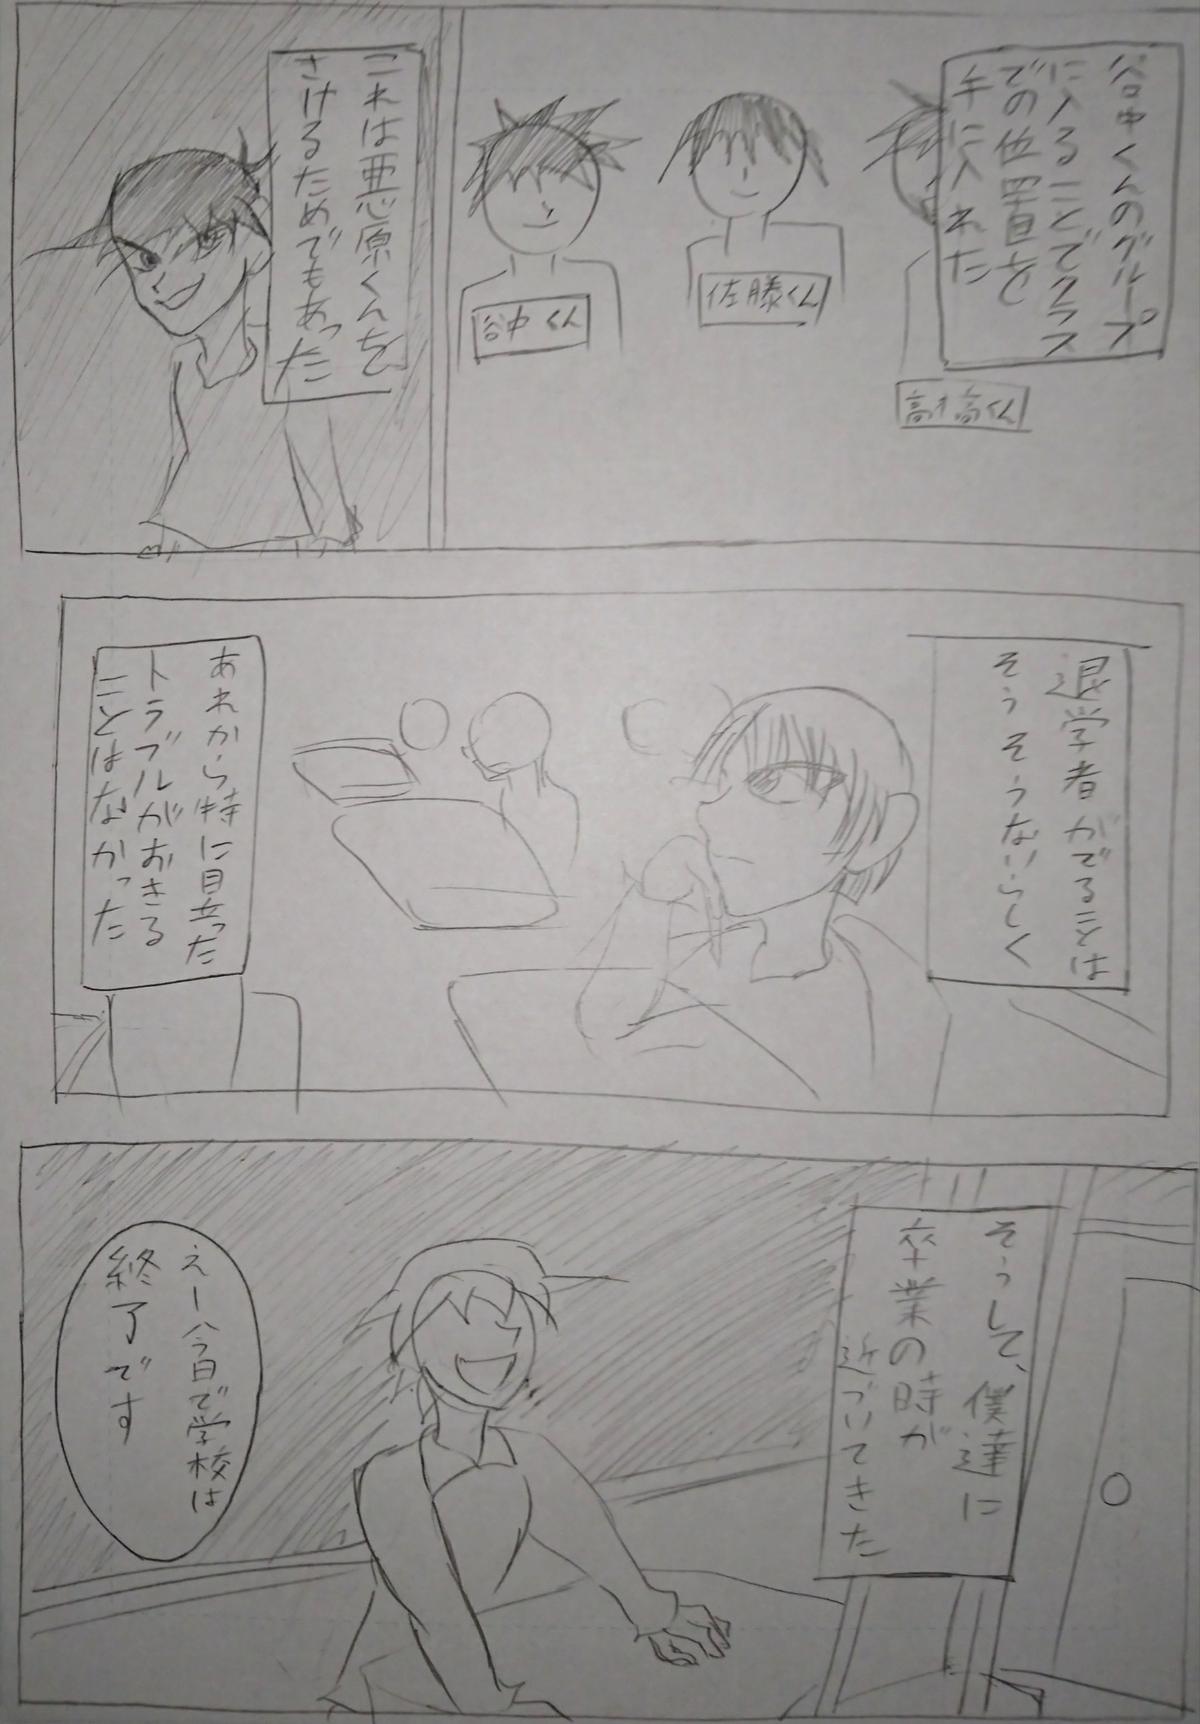 谷中くんのグループ
に入ることでクラス
での位置を
手に入れた
高橋くん
佐藤くん
谷中くん
これは悪原くんを
さけるためでもあった
退学者がでることは
そうそうないらしく
あれから特に目立った
トラブルがおきる
ことはなかった
そうして、僕達に
卒業の時が
近づいてきた
えー今日で学校は
終了です